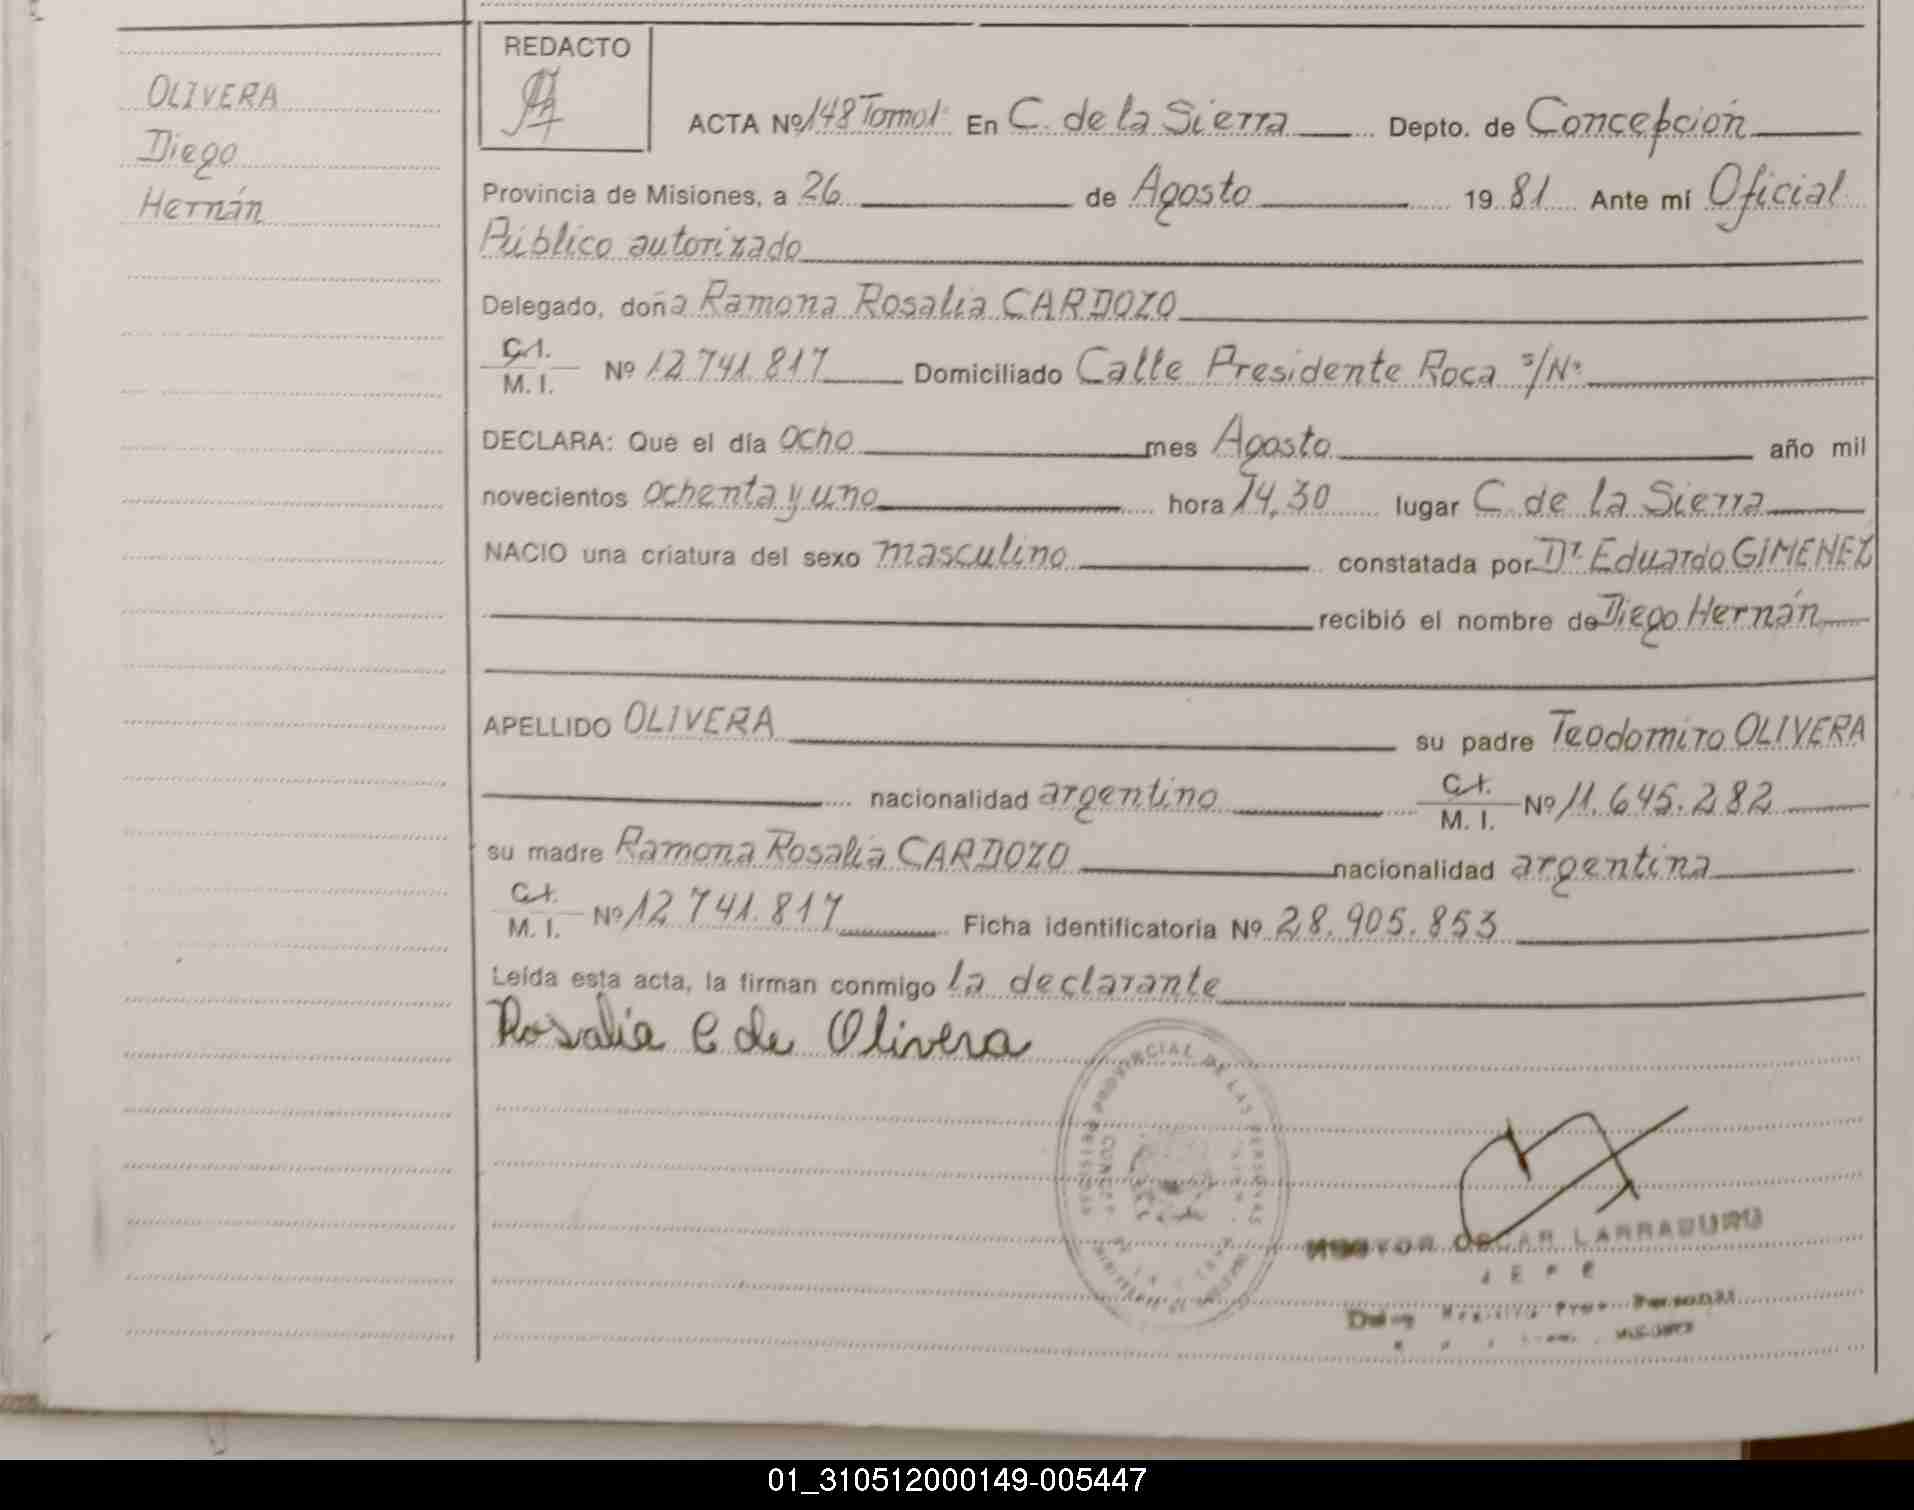 OLIVERA
Diego
Hernán
REDACTO
ACTA Nº 148 Tomo I En C. de la Sierra Depto. de Concepción
Provincia de Misiones, a 26 de Agosto 1981 Ante mí Oficial
Público autorizado
Delegado, doña Ramona Rosalia CARDOZO
C.I.
M. I. Nº 12.741.817 Domiciliado Calle Presidente Roca s/Nº
DECLARA: Que el día ocho mes Agosto año mil
novecientos ochenta y uno hora 14,30 lugar C. de la Sierra
NACIO una criatura del sexo masculino constatada por Dr. Eduardo GIMENEZ
recibió el nombre de Diego Hernán
APELLIDO OLIVERA su padre Teodomiro OLIVERA
nacionalidad argentino C.I. M. I. Nº 11.645.282
su madre Ramona Rosalia CARDOZO nacionalidad argentina
C.I.
M. I. Nº 12.741.817 Ficha identificatoria Nº 28.905.853
Leída esta acta, la firman conmigo la declarante
Rosalia C de Olivera
REGISTRO PROVINCIAL DE LAS PERSONAS
OSCAR LARRABURU
JEFE
01_310512000149-005447